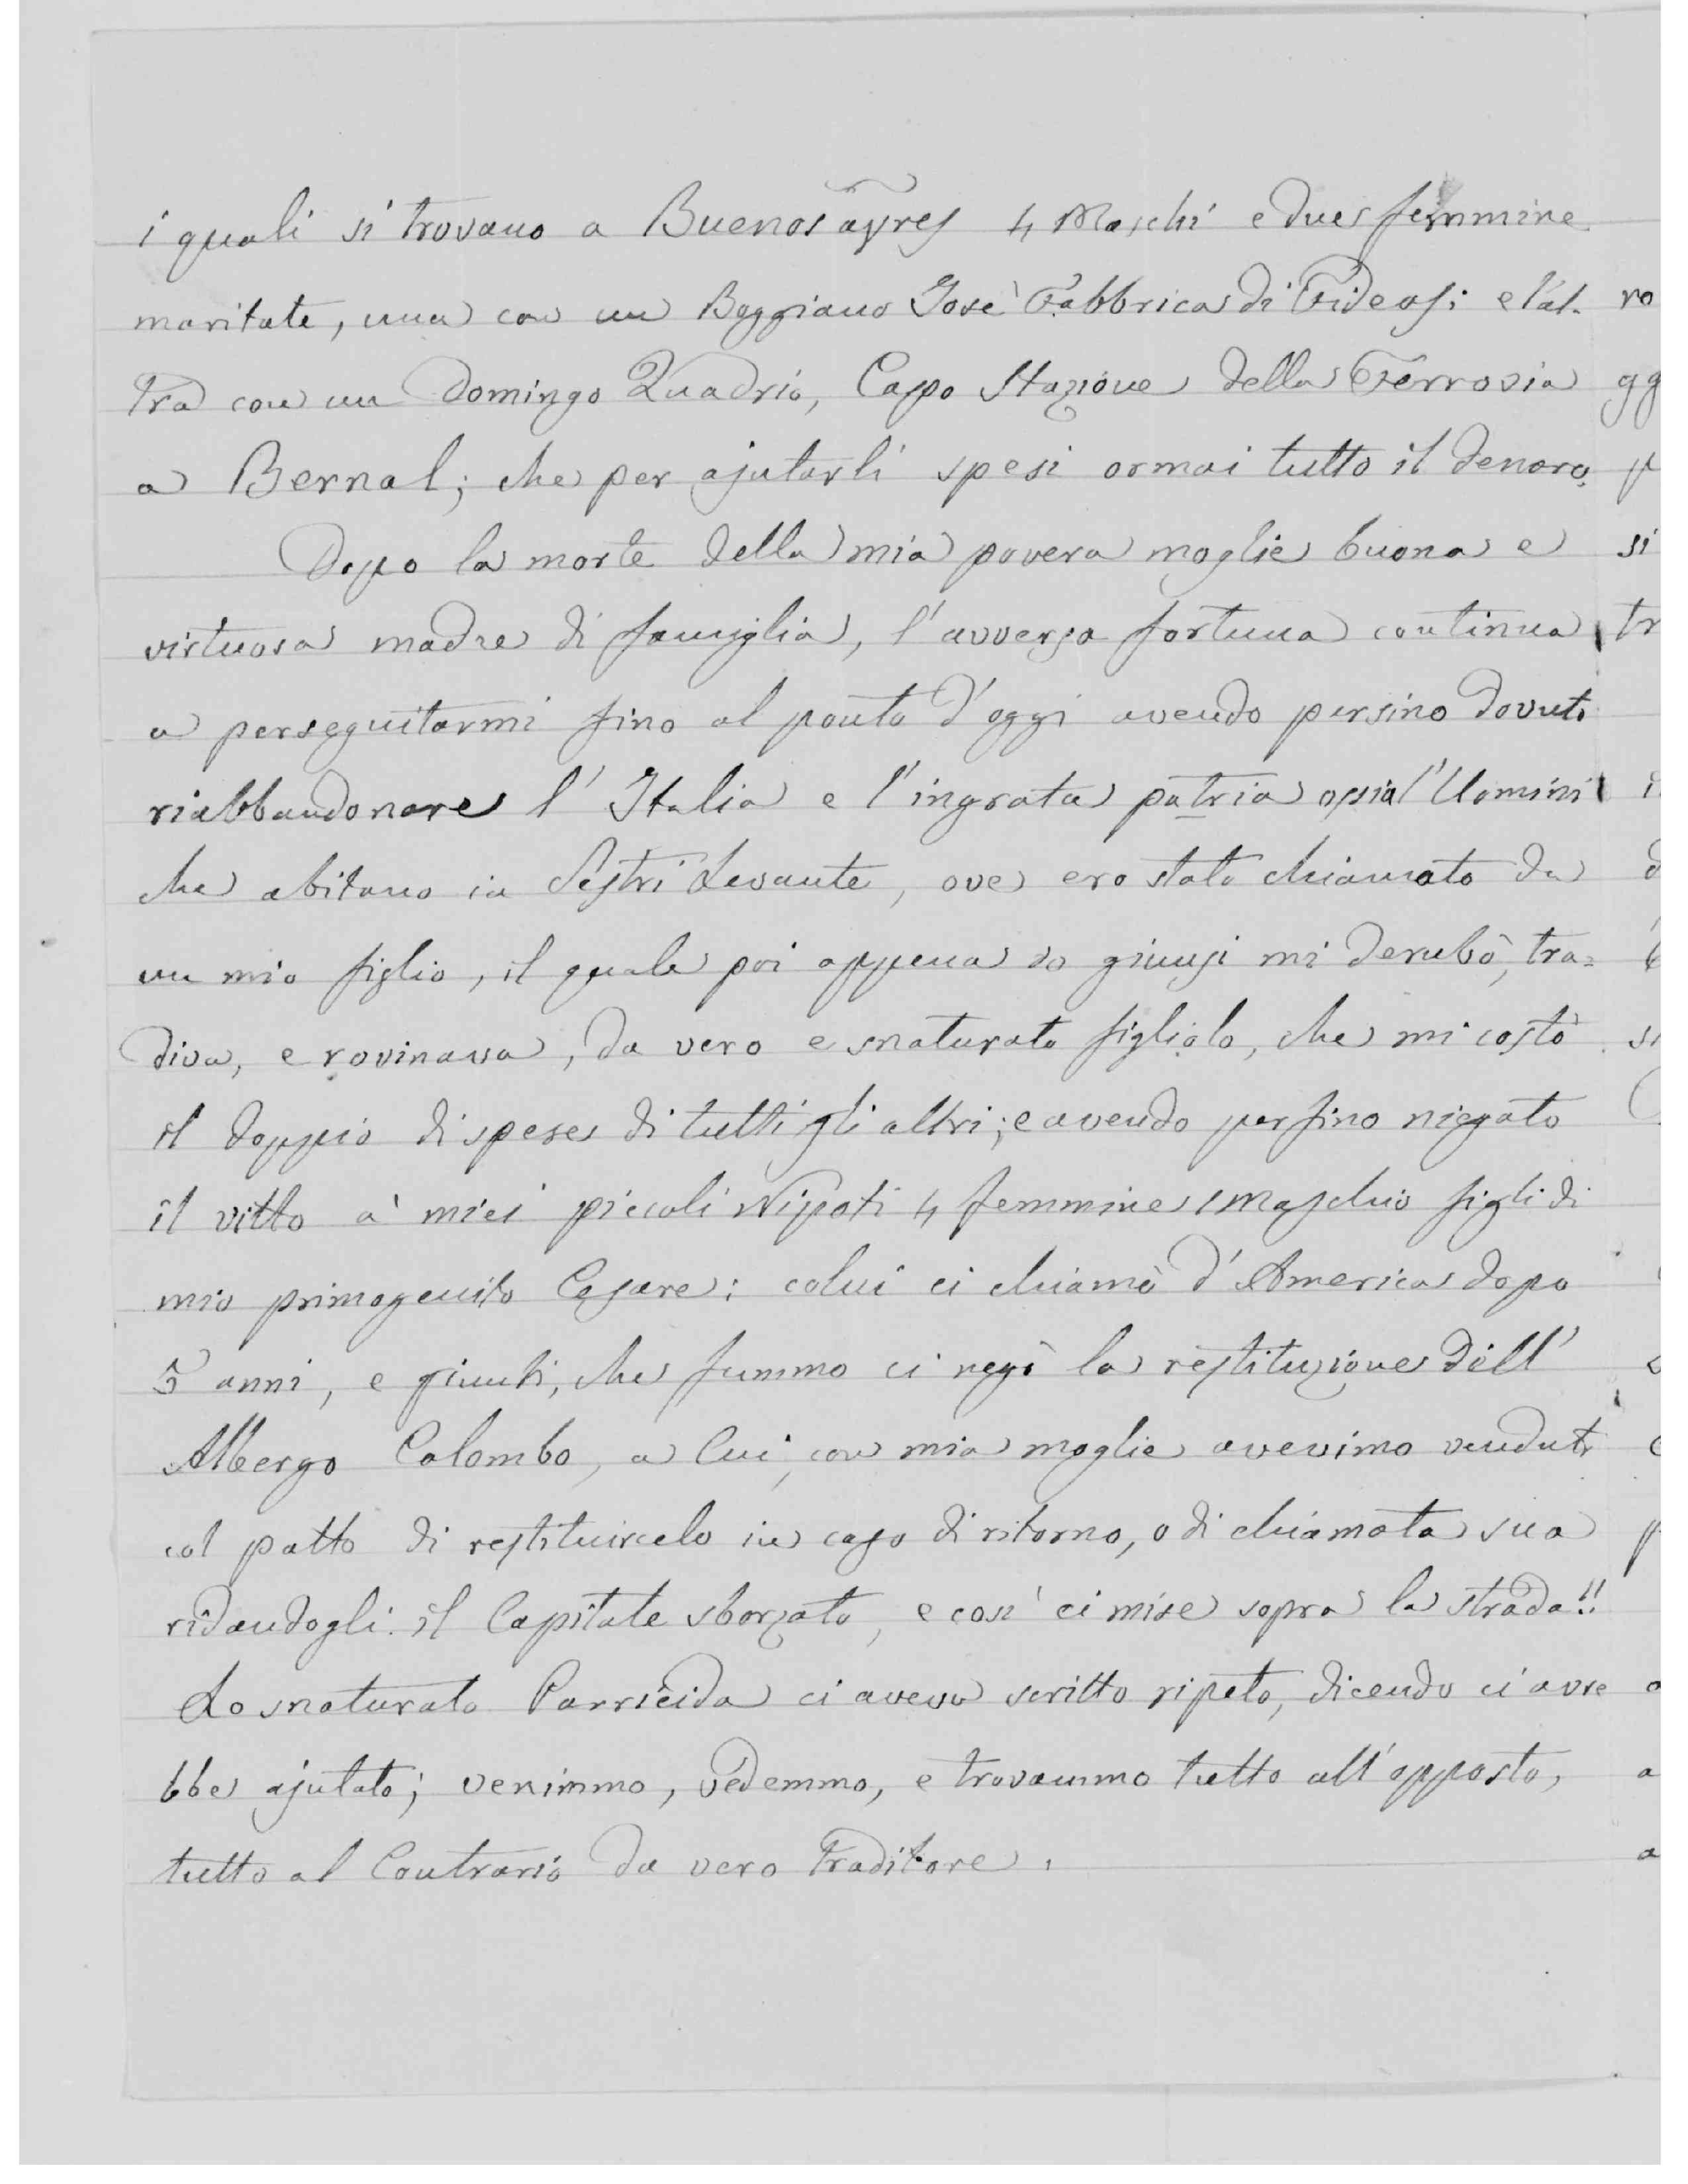 i quali si trovano a Buenos ayres 4 Maschi e due femmine
maritate, una con un Boggiano Josè Fabbrica di Fideosi e l'al-
tra con un Domingo Quadrio, Capo Stazione della Ferrovia
a Bernal; che per ajutarli spesi ormai tutto il denaro.
Dopo la morte della mia povera moglie buona e
virtuosa madre di famiglia, l'avversa fortuna continua
a perseguitarmi fino al ponto d'oggi avendo persino dovuto
riabbandonare l'Italia e l'ingrata patria ossia l'Uomini
che abitano in Sestri Levante, ove ero stato chiamato da
un mio figlio, il quale poi appena io giunsi mi derubò, tra=
diva, e rovinava, da vero e snaturato figliolo, che mi costò
il doppio di spese di tutti gli altri; e avendo perfino niegato
il vitto a' miei piccoli Nipoti 4 femmine 1 Maschio figli di
mio primogenito Cesare: colui ci chiamò d'America dopo
5 anni, e giunti, che fummo ci negò la restituzione dell'
Albergo Colombo, a Cui, con mia moglie avevimo venduto
col patto di restituircelo in caso di ritorno, o di chiamata sua
ridandogli il Capitale sborzato, e così ci mise sopra la strada!!
Lo snaturato Parricida ci aveva scritto ripeto, dicendo ci avre
bbe ajutato; venimmo, vedemmo, e trovammo tutto all'opposto,
tutto al Contrario da vero Traditore.